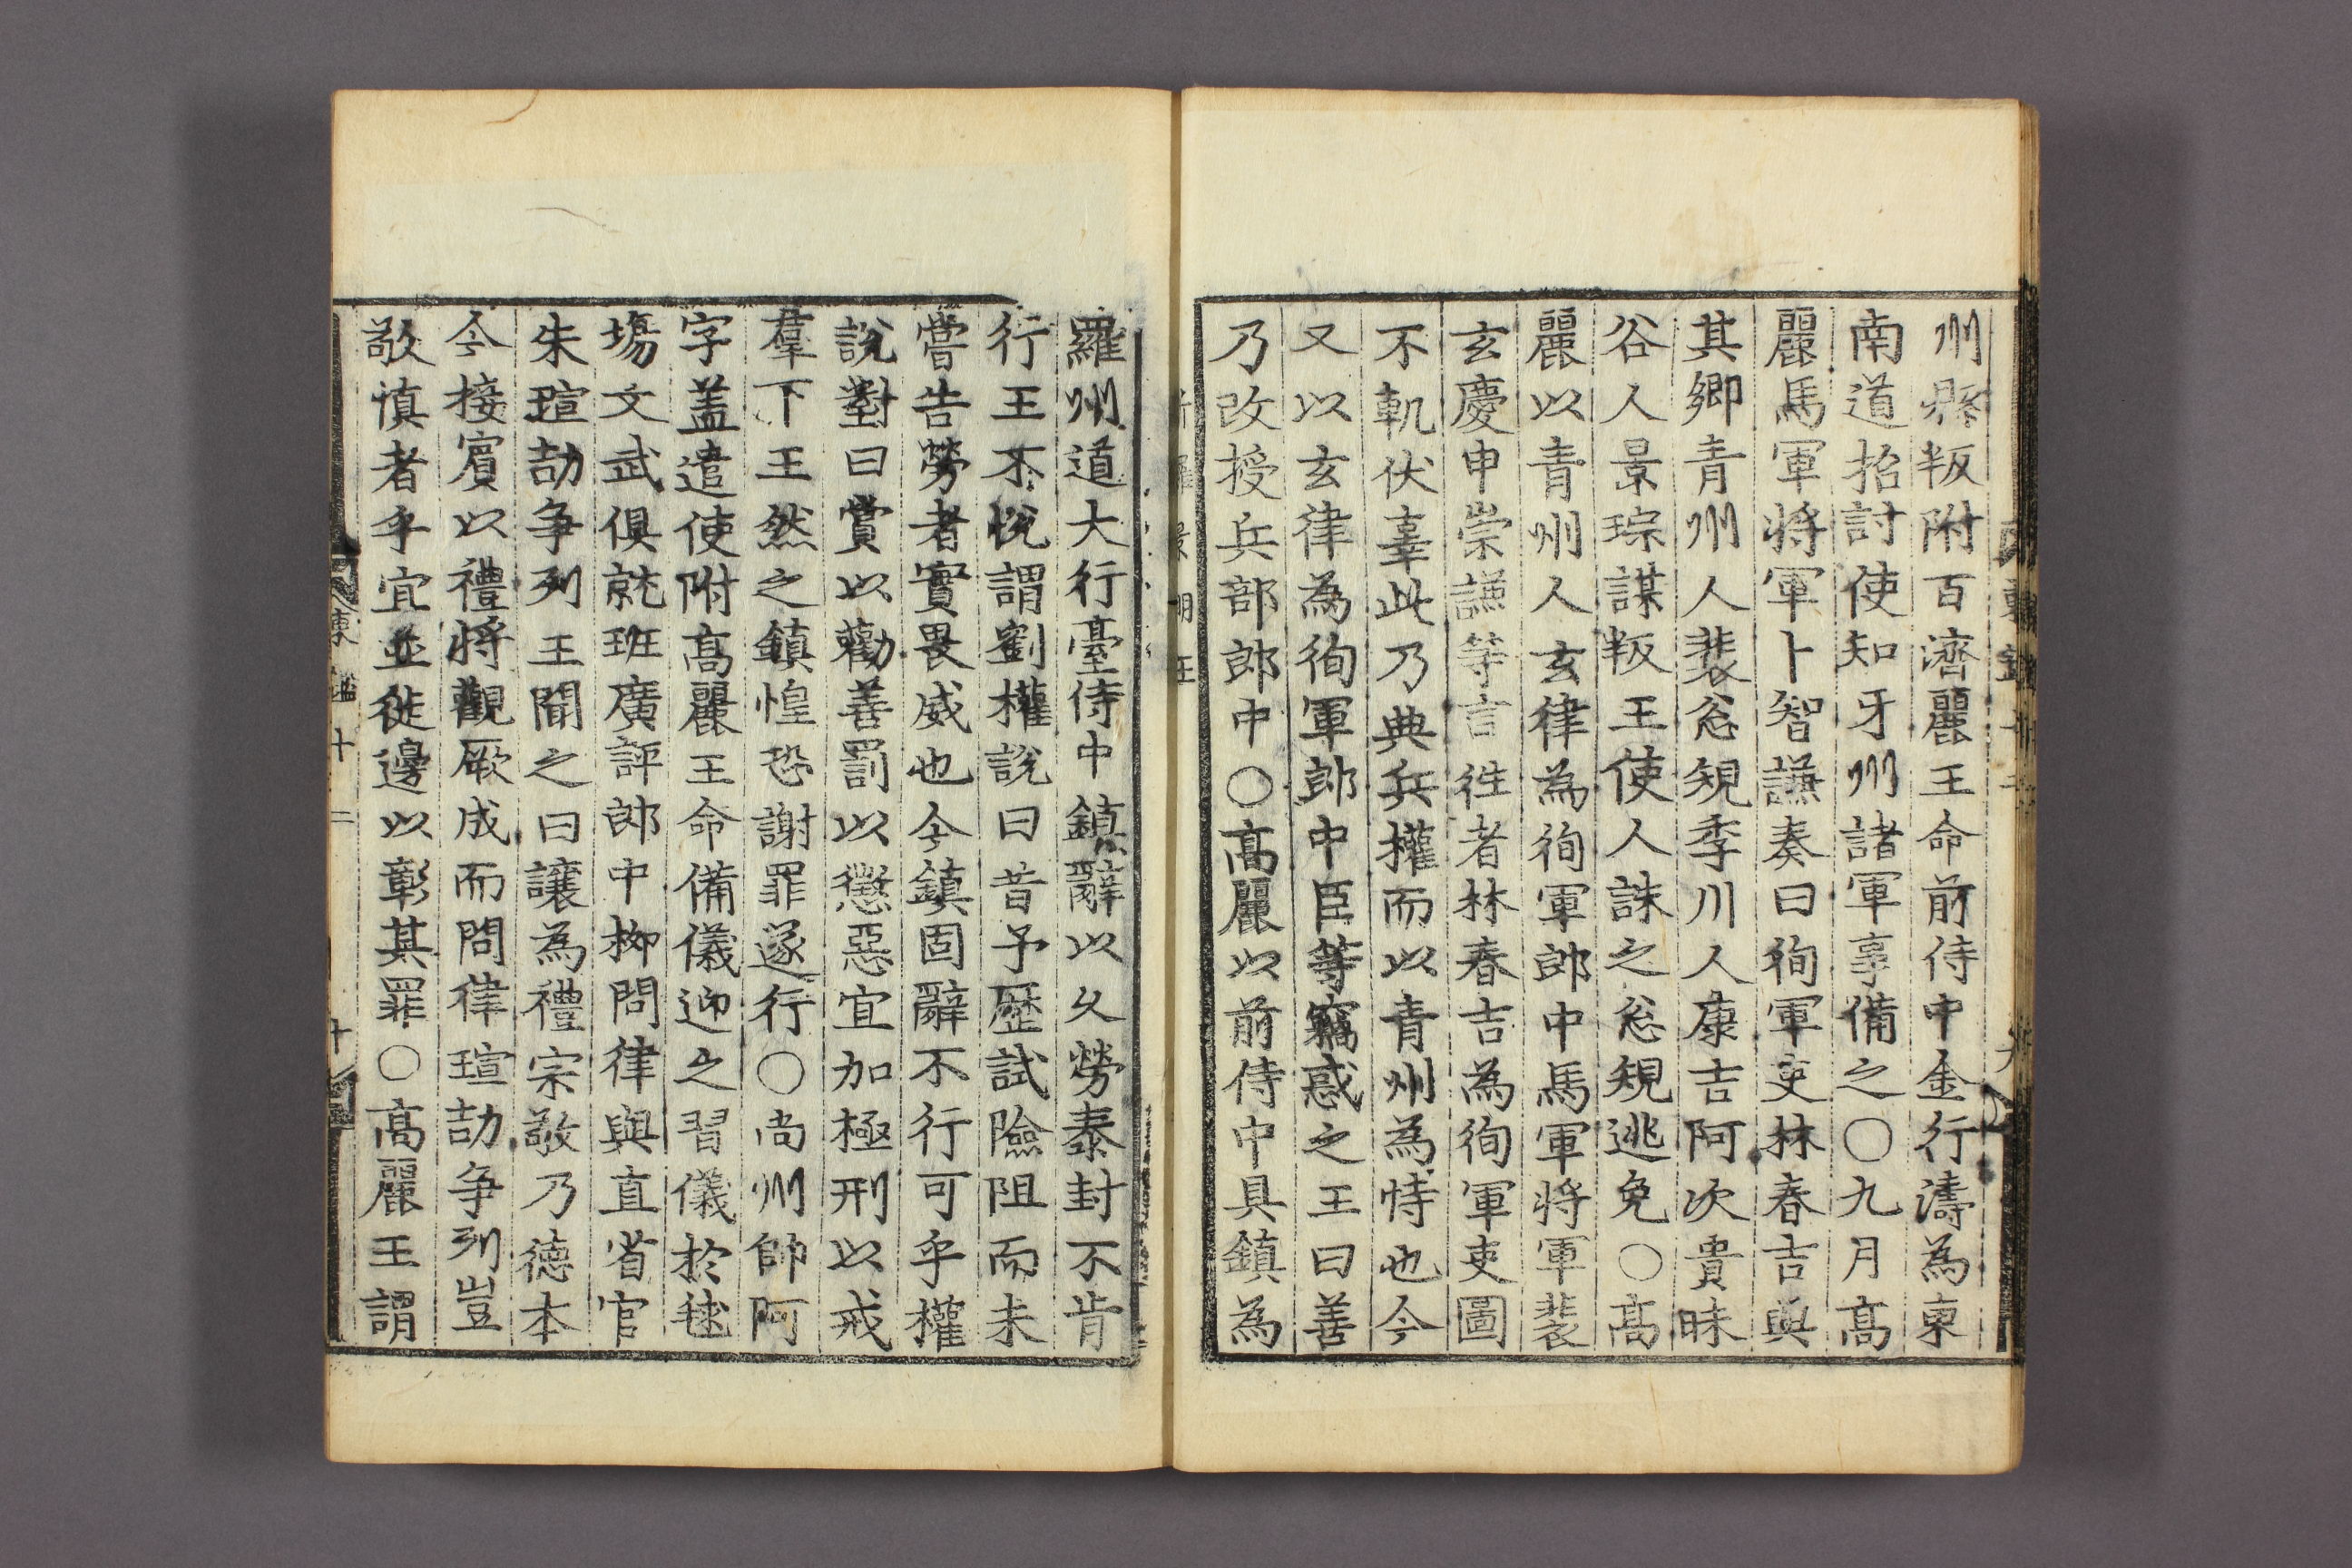 州縣叛附百濟麗王命前侍中金行濤為東
南道招討使知牙州諸軍事備之○九月高
麗馬軍將軍卜智謙奏曰徇軍吏林春吉與
其鄉青州人裴忩規季川人康吉阿次貴昧
谷人景琮謀叛王使人誅之忩規逃免○高
麗以青州人玄律為徇軍郎中馬軍將軍裴
玄慶申崇謙等言徃者林春吉為徇軍吏圖
不軌伏辜此乃典兵權而以青州為恃也今
又以玄律為徇軍郎中臣等竊惑之王曰善
乃改授兵部郎中○高麗以前侍中具鎮為
羅州道大行臺侍中鎮辭以乆勞泰封不肯
行王不恱謂劉權說曰昔予歷試險阻而未
嘗告勞者實畏威也今鎮固辭不行可乎權
說對曰賞以勸善罰以懲惡宜加極刑以戒
羣下王然之鎮惶恐謝罪遂行○尚州帥阿
字盖遣使附高麗王命備儀迎之習儀於毬
塲文武俱就班廣評郎中柳問律與直省官
朱瑄劼争列王聞之曰讓為禮宗敬乃德本
今接賓以禮將觀厥成而問律瑄劼争列豈
敬慎者乎宜並徙邊以彰其罪○高麗王謂
東鑑十二